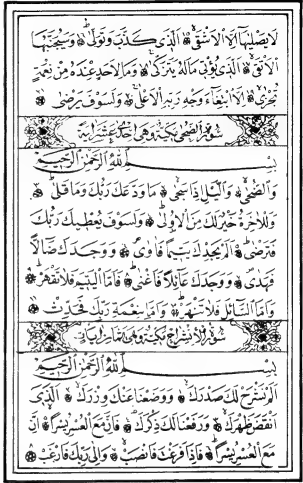 لَا يَصْلٰيهَا اِلَّا الْاَشْقٰى الَّذِى كَذَّبَ وَتَوَلّٰى وَسَيُجَنَّبُهَا
الْاَتْقٰى الَّذِى يُؤْتِى مَالَهُ يَتَزَكّٰى وَمَا لِاَحَدٍ عِنْدَهُ مِنْ نِعْمَةٍ
تُجْزٰى اِلَّا ابْتِغَاءَ وَجْهِ رَبِّهِ الْاَعْلٰى وَلَسَوْفَ يَرْضٰى
سورة الضحى مكية وهى احدى عشرة اية
بِسْمِ اللّٰهِ الرَّحْمٰنِ الرَّحِيمِ
وَالضُّحٰى وَالَّيْلِ اِذَا سَجٰى مَا وَدَّعَكَ رَبُّكَ وَمَا قَلٰى
وَلَلْاٰخِرَةُ خَيْرٌ لَكَ مِنَ الْاُولٰى وَلَسَوْفَ يُعْطِيكَ رَبُّكَ
فَتَرْضٰى اَلَمْ يَجِدْكَ يَتِيمًا فَاٰوٰى وَوَجَدَكَ ضَالًّا
فَهَدٰى وَوَجَدَكَ عَائِلًا فَاَغْنٰى فَاَمَّا الْيَتِيمَ فَلَا تَقْهَرْ
وَاَمَّا السَّائِلَ فَلَا تَنْهَرْ وَاَمَّا بِنِعْمَةِ رَبِّكَ فَحَدِّثْ
سورة الانشراح مكية وهى ثمان ايات
بِسْمِ اللّٰهِ الرَّحْمٰنِ الرَّحِيمِ
اَلَمْ نَشْرَحْ لَكَ صَدْرَكَ وَوَضَعْنَا عَنْكَ وِزْرَكَ الَّذِى
اَنْقَضَ ظَهْرَكَ وَرَفَعْنَا لَكَ ذِكْرَكَ فَاِنَّ مَعَ الْعُسْرِ يُسْرًا اِنَّ
مَعَ الْعُسْرِ يُسْرًا فَاِذَا فَرَغْتَ فَانْصَبْ وَاِلٰى رَبِّكَ فَارْغَبْ